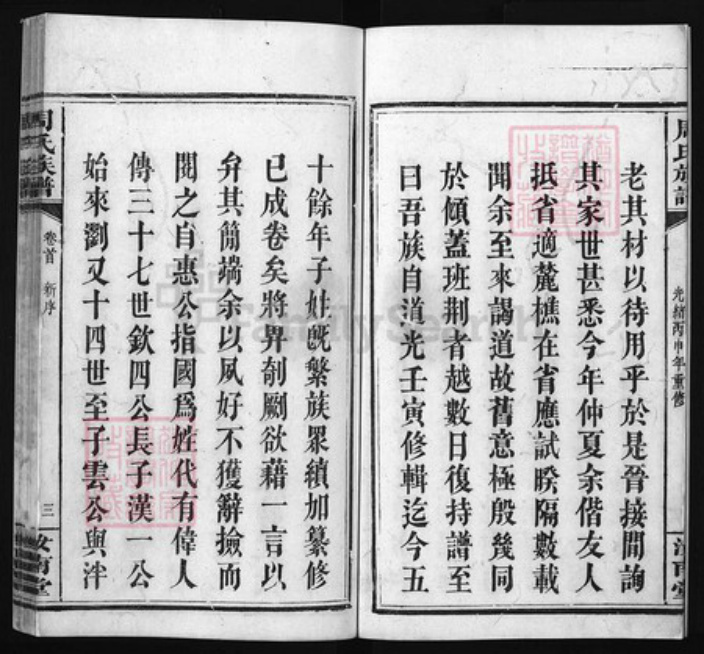 周氏族譜
光緒丙申年重修
汝南堂
老其材以待用乎於是晉接間詢
其家世甚悉今年仲夏余偕友人
抵省適麓樵在省應試睽隔數載
聞余至來謁道故舊意極殷幾同
於傾蓋班荆者越數日復持譜至
曰吾族自道光壬寅修輯迄今五
十餘年子姓旣繁族眾續加纂修
已成卷矣將畀剞劂欲藉一言以
弁其簡端余以夙好不獲辭撿而
閱之自惠公指國爲姓代有偉人
傳三十七世欽四公長子漢一公
始來瀏又十四世至子雲公與泮
周氏族譜
卷首 新序
三
汝南堂
FamilySearch